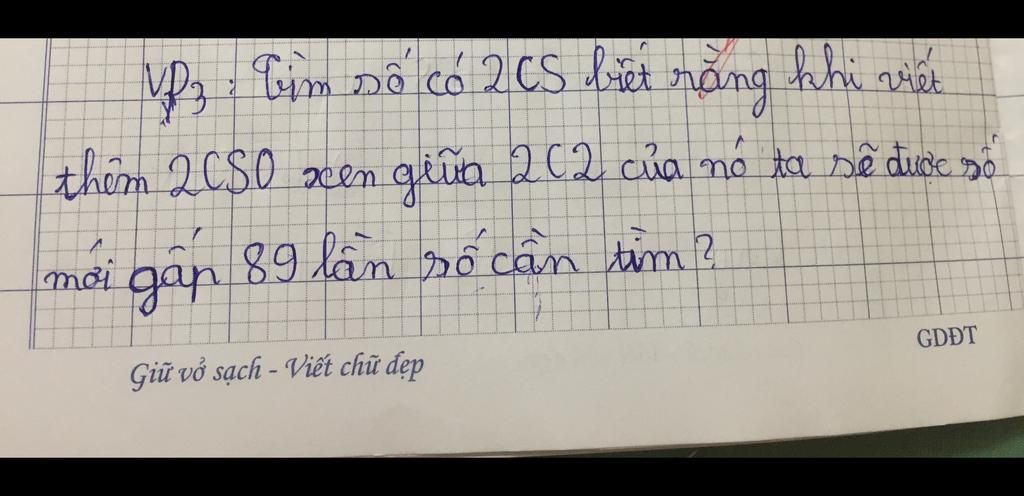 VD3: Tìm số có 2CS biết rằng khi viết
thêm 2CS0 xen giữa 2C2 của nó ta sẽ được số
mới gấp 89 lần số cần tìm?
GDĐT
Giữ vở sạch - Viết chữ đẹp